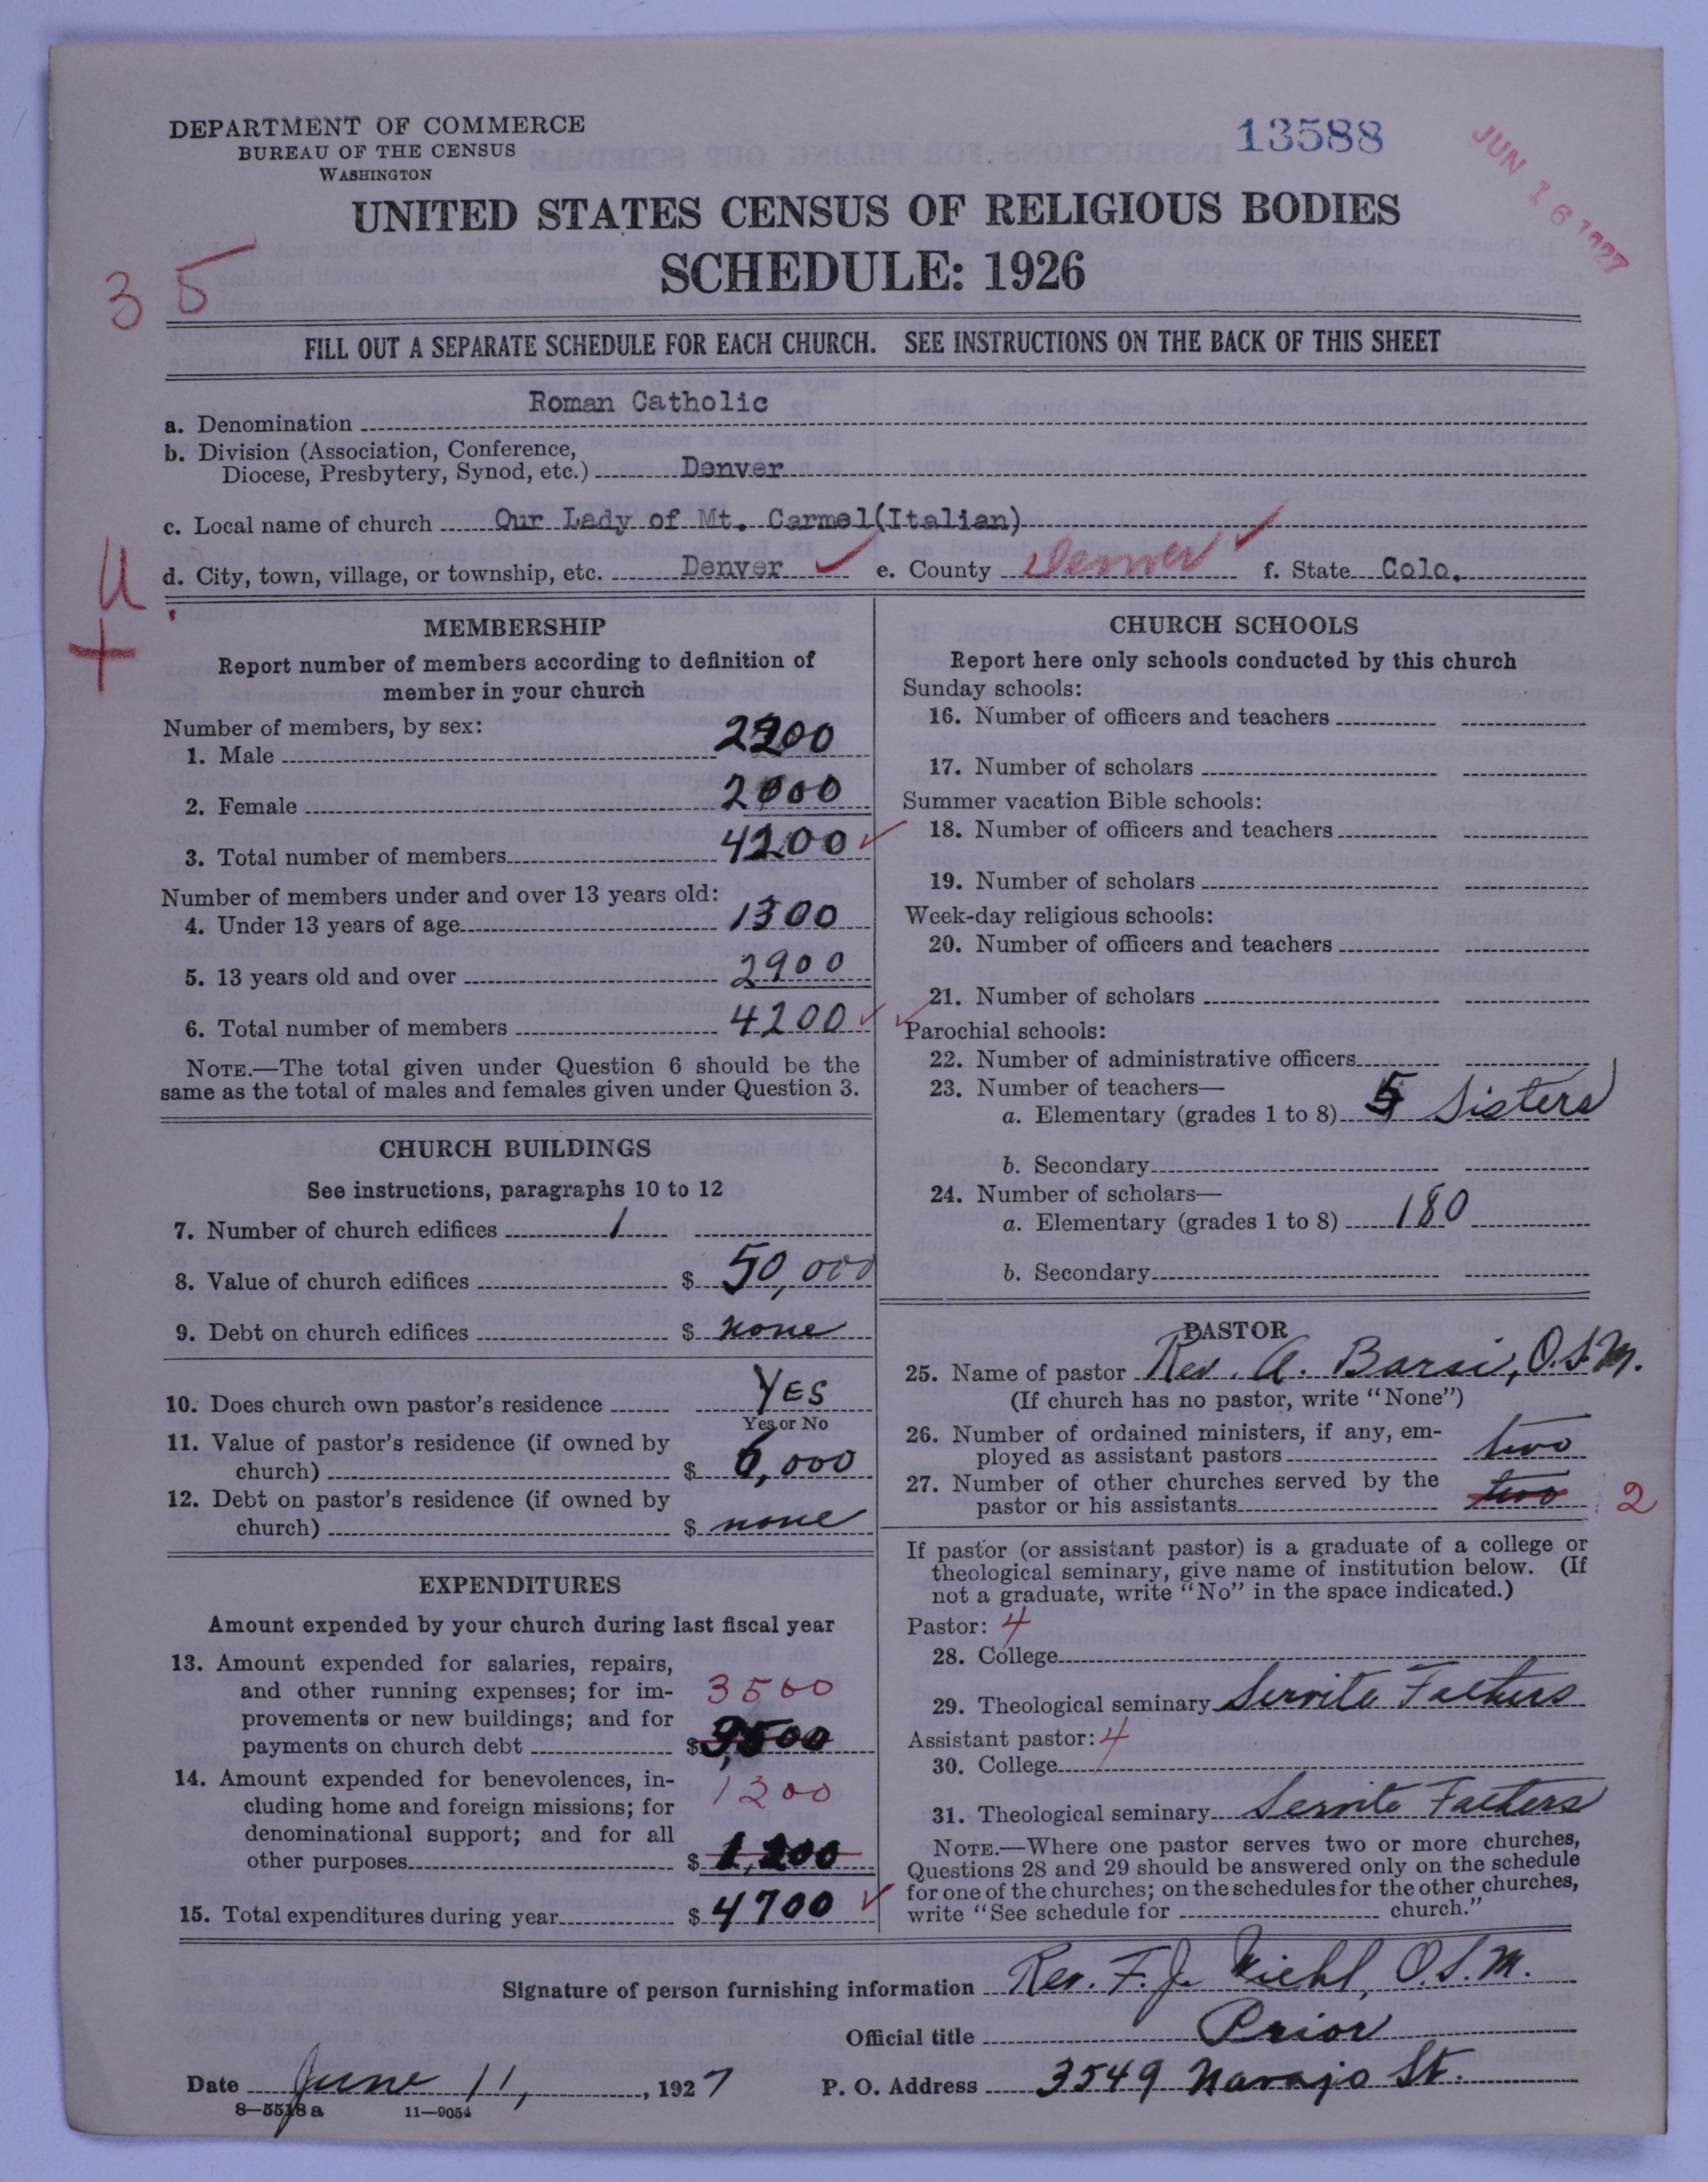 DEPARTMENT OF COMMERCE
BUREAU OF THE CENSUS
WASHINGTON
13588
JUN 16 1927
UNITED STATES CENSUS OF RELIGIOUS BODIES
SCHEDULE: 1926
35
FILL OUT A SEPARATE SCHEDULE FOR EACH CHURCH. SEE INSTRUCTIONS ON THE BACK OF THIS SHEET
a. Denomination Roman Catholic
b. Division (Association, Conference,
Diocese, Presbytery, Synod, etc.) Denver
c. Local name of church Our Lady of Mt. Carmel(Italian)
d. City, town, village, or township, etc. Denver ✓ e. County Denver ✓ f. State Colo.
U
+
MEMBERSHIP
Report number of members according to definition of
member in your church
Number of members, by sex:
1. Male 2200
2. Female 2000
3. Total number of members 4200 ✓
Number of members under and over 13 years old:
4. Under 13 years of age 1300
5. 13 years old and over 2900
6. Total number of members 4200 ✓
NOTE.—The total given under Question 6 should be the
same as the total of males and females given under Question 3.
CHURCH BUILDINGS
See instructions, paragraphs 10 to 12
7. Number of church edifices 1
8. Value of church edifices $ 50,000
9. Debt on church edifices $ none
10. Does church own pastor's residence YES
Yes or No
11. Value of pastor's residence (if owned by
church) $ 6,000
12. Debt on pastor's residence (if owned by
church) $ none
EXPENDITURES
Amount expended by your church during last fiscal year
13. Amount expended for salaries, repairs,
and other running expenses; for im- 3500
provements or new buildings; and for
payments on church debt $ 3,500
14. Amount expended for benevolences, in- 1200
cluding home and foreign missions; for
denominational support; and for all
other purposes $ 1,200
15. Total expenditures during year $ 4700 ✓
CHURCH SCHOOLS
Report here only schools conducted by this church
Sunday schools:
16. Number of officers and teachers
17. Number of scholars
Summer vacation Bible schools:
18. Number of officers and teachers
19. Number of scholars
Week-day religious schools:
20. Number of officers and teachers
21. Number of scholars
✓ Parochial schools:
22. Number of administrative officers
23. Number of teachers—
a. Elementary (grades 1 to 8) 5 Sisters
b. Secondary
24. Number of scholars—
a. Elementary (grades 1 to 8) 180
b. Secondary
PASTOR
25. Name of pastor Rev. A. Barsi, O.S.M.
(If church has no pastor, write "None")
26. Number of ordained ministers, if any, em-
ployed as assistant pastors two
27. Number of other churches served by the
pastor or his assistants two 2
If pastor (or assistant pastor) is a graduate of a college or
theological seminary, give name of institution below. (If
not a graduate, write "No" in the space indicated.)
Pastor: 4
28. College
29. Theological seminary Servite Fathers
Assistant pastor: 4
30. College
31. Theological seminary Servite Fathers
NOTE.—Where one pastor serves two or more churches,
Questions 28 and 29 should be answered only on the schedule
for one of the churches; on the schedules for the other churches,
write "See schedule for church."
Signature of person furnishing information Rev. F. J. Kiehl, O.S.M.
Official title Prior
Date June 11, 1927 P. O. Address 3549 Navajo St.
8—5518 a 11—9054